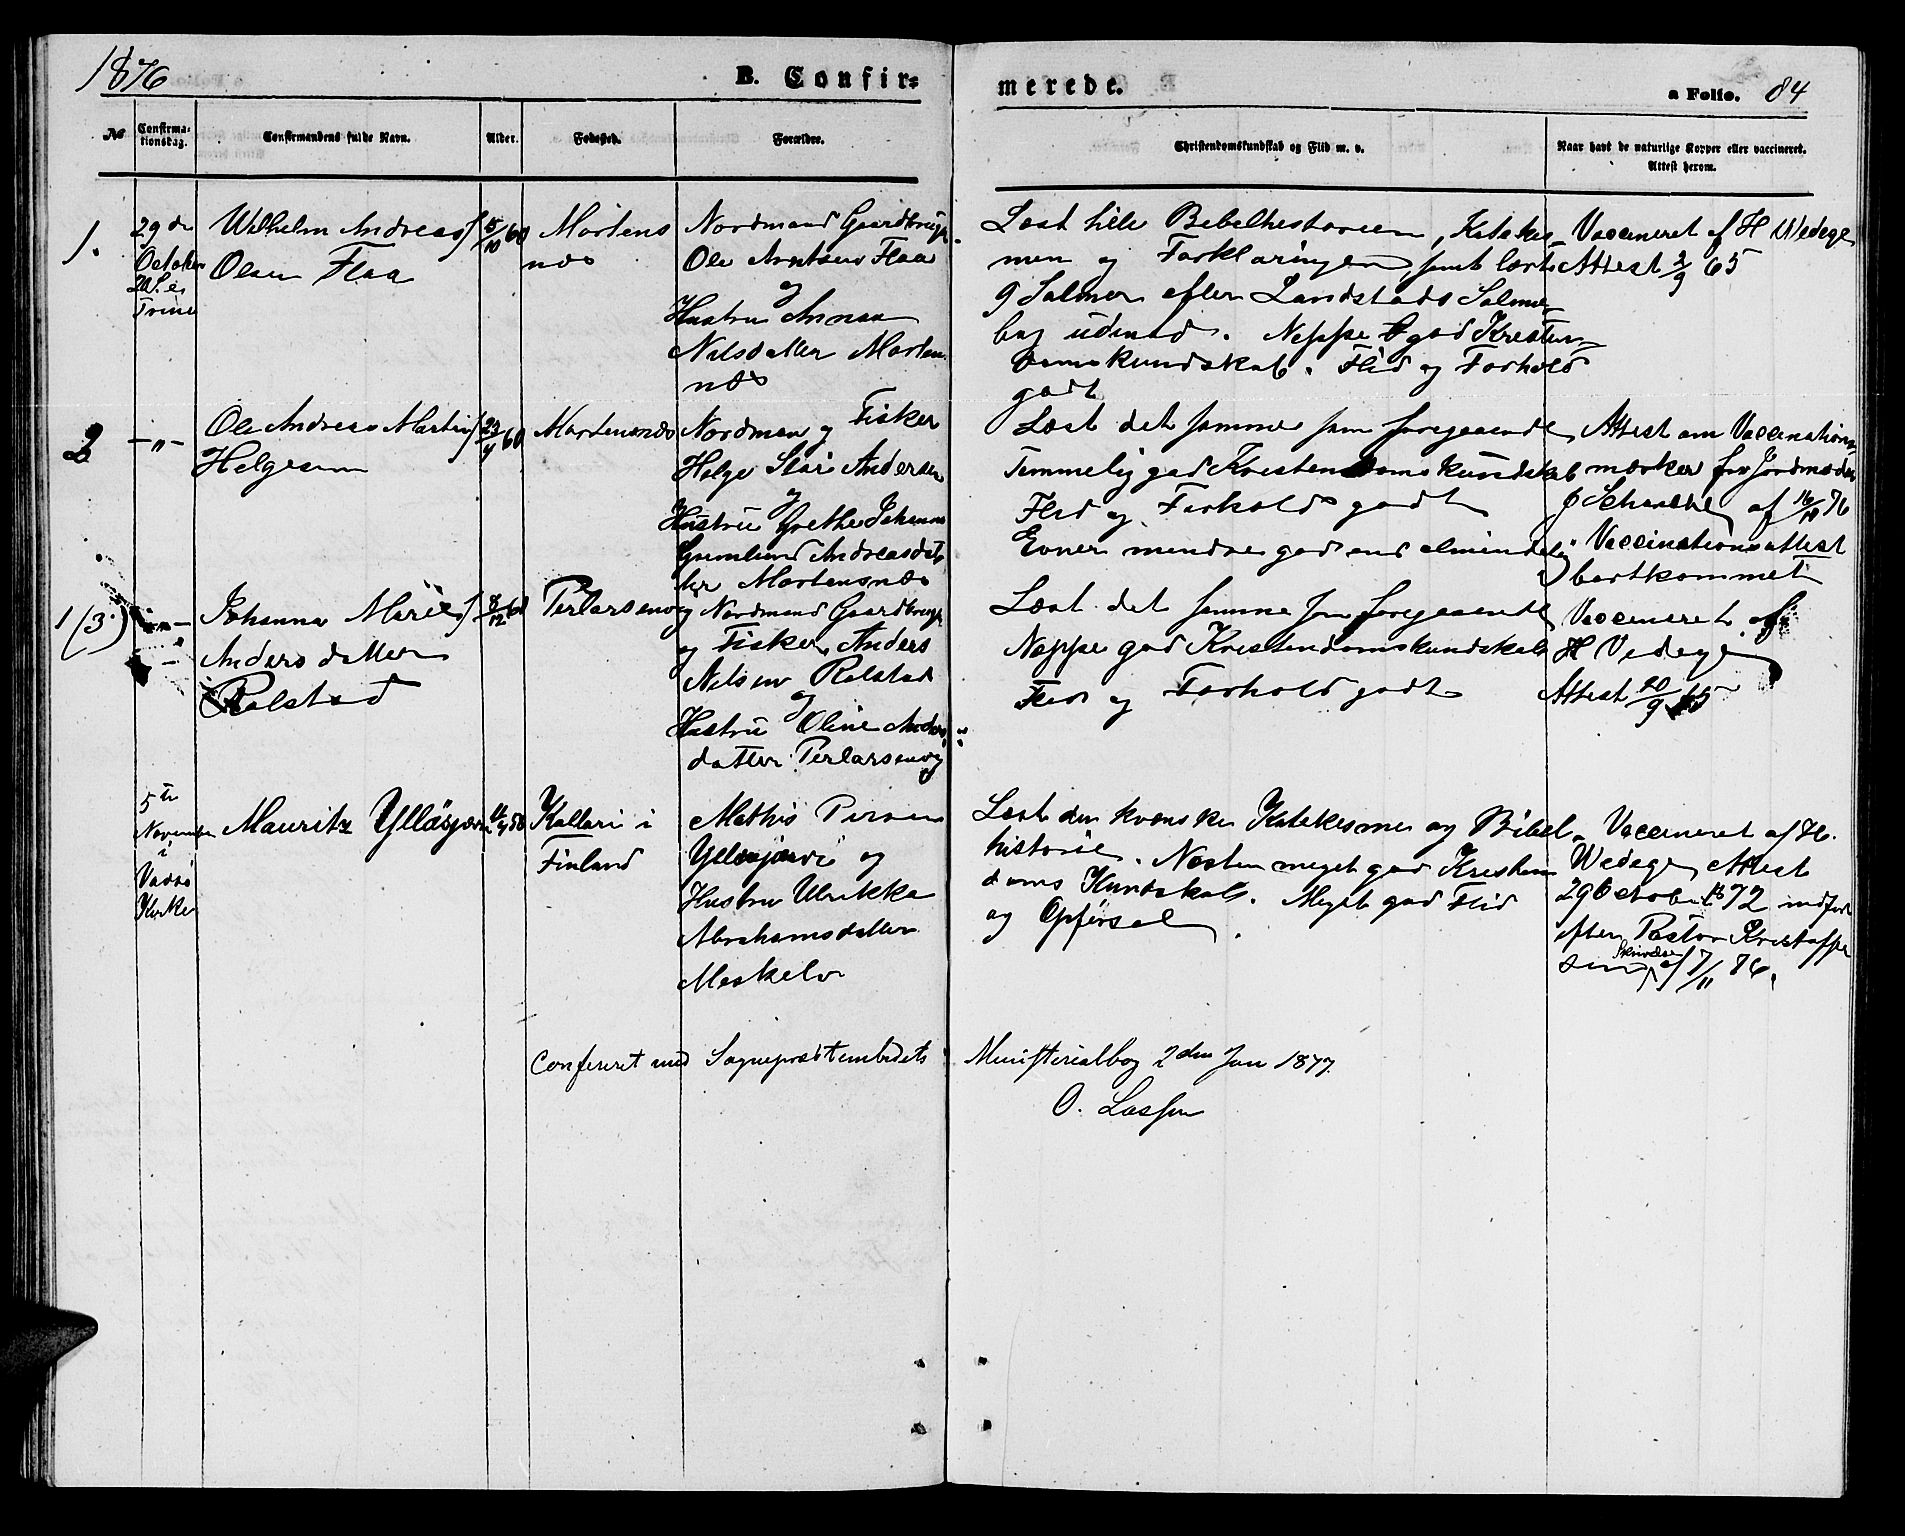 1876
B. Confir=
merede.
a Folio. 84
No
Confirma=
tionsdag.
Confirmandens fulde Navn.
Alder.
Fødested.
Forældre.
Christendomskundskab og Flid m. v.
Naar havt de naturlige Kopper eller vaccineret.
Attest herom.
1.
29de
October
20 S. e.
Trin
Wilhelm Andreas
Olsen Flaa
f 5/10 60
Mortens
næs
Nordmand Gaardbruger
Ole Arntsen Flaa
og
Hustru Anna
Nilsdatter Morten
næs
Læst hele Bibelhistorien, Katekis
men og Forklaringen samt lært
9 Salmer efter Landstads Salme
bog udenad. Neppe god Kristen
domskundskab. Flid og Forhold
godt
Vaccineret af H Wedege
Attest 2/9 65
2
-"-
Ole Andreas Martin
Helgesen
f 23/4 60
Mortensnæs
Nordmand og Fisker
Helge Andersen
og
Hustru Grethe Johanna
Andreasdat
ter Mortensnæs
Læst det samme som foregaaende
Temmelig god Kristendomskundskab
Flid og Forhold godt
Evner mindre god end almindelig
Attest om Vaccination
mærker fra Jordmoder
af 16/10 76
Vaccinationsattest
bortkommet
1 (3.)
-"-
Johanna Marie
Andersdatter
Rolstad
f 8/12 60
Perlarsenvig
Nordmand Gaardbruger
og Fisker Anders
Nilsen Rolstad
og
Hustru Oline Anders
datter Perlarsenvig
Læst det samme som foregaaende
Neppe god Kristendomskundskab
Flid og Forhold godt
Vaccineret af
H Vedege
Attest 20/9 65
5te
November
i
Vadsø
Kirke
Mauritz Yllåsjærvi
58
Kollari i
Finland
Mathis Persen
Yllesjarvi og
Hustru Ulrikka
Abrahamsdatter
Meskelv
Læst den kvænske Katekisme og Bibel
historie. Næsten meget god Kristen
doms Kundskab. Meget god Flid
og Opførsel.
Vaccineret af H.
Wedege, Attest
29 October 1872 indført
efter Pastor Kristoffer
sens Skrivelse af 7/11 76.
Confereret med Sogneprestembedets
Ministerialbog 2den Jan 1877.
O. Lassen